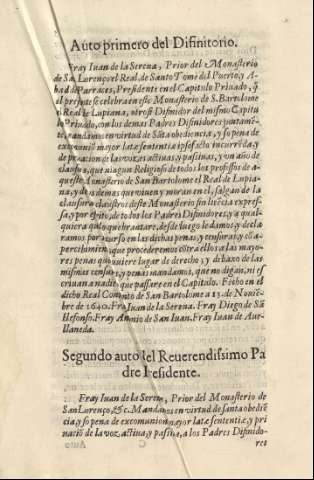 Auto primero del Difinitorio.
Fray Iuan de la Serena, Prior del Monasterio
de Sã Lorenço el Real, de Santo Tome del Puerto, A-
bad de Parraces, Presidente en el Capitulo Priuado, q̃
al presente se celebra en este Monasterio de S. Bartolome
el Real de Lupiana, y
Priuado, con los demas Padres Difinidores juntamē-
te, mandamos en virtud de Sāta obediencia, y so pena de
excomuniō mayor latæ sententiæ ipso facto incurrēda, y
de priuacion de las vozes actiuas, y passiuas, y vn año de
clausura, que ningun Religioso de todos los professos de a-
queste Monasterio de San Bartolome el Real de Lupia-
na, y de los demas que viuen y moran en el, salgan de la
clausura claustros deste Monasterio sin licēcia expres-
sa, y por escrito de todos los Padres Difinidores, y a qual-
quiera que lo quebrantare, desde luego le damos, y decla-
ramos por incurso en las dichas penas, y censuras, y cō a-
percebimiēto, que procederemos cōtra el los a las mayo-
res penas que vuiere lugar de derecho; y debaxo de las
mismas censuras, y penas mandamos, que no digan, ni es
criuan a nadie que passare en el Capitulo. Fecho en el
dicho Real Conuento de San Bartolome a 13. de Nouiē-
bre de 1640. Fray Iuan de la Serena. Fray Diego de Sã
Ilefonso. Fray Antonio de San Iuan. Fray Iuan de Aue-
llaneda.
Segundo auto del Reuerendissimo Pa
dre Presidente.
Fray Iuan de la Serena, Prior del Monasterio de
San Lorenço, &c. Mandamos en virtud de santa obediē
cia, y so pena de excomunion mayor latæ sententiæ, y pri
uacion de la voz, actiua, y passiua, a los Padres Difinido-
res